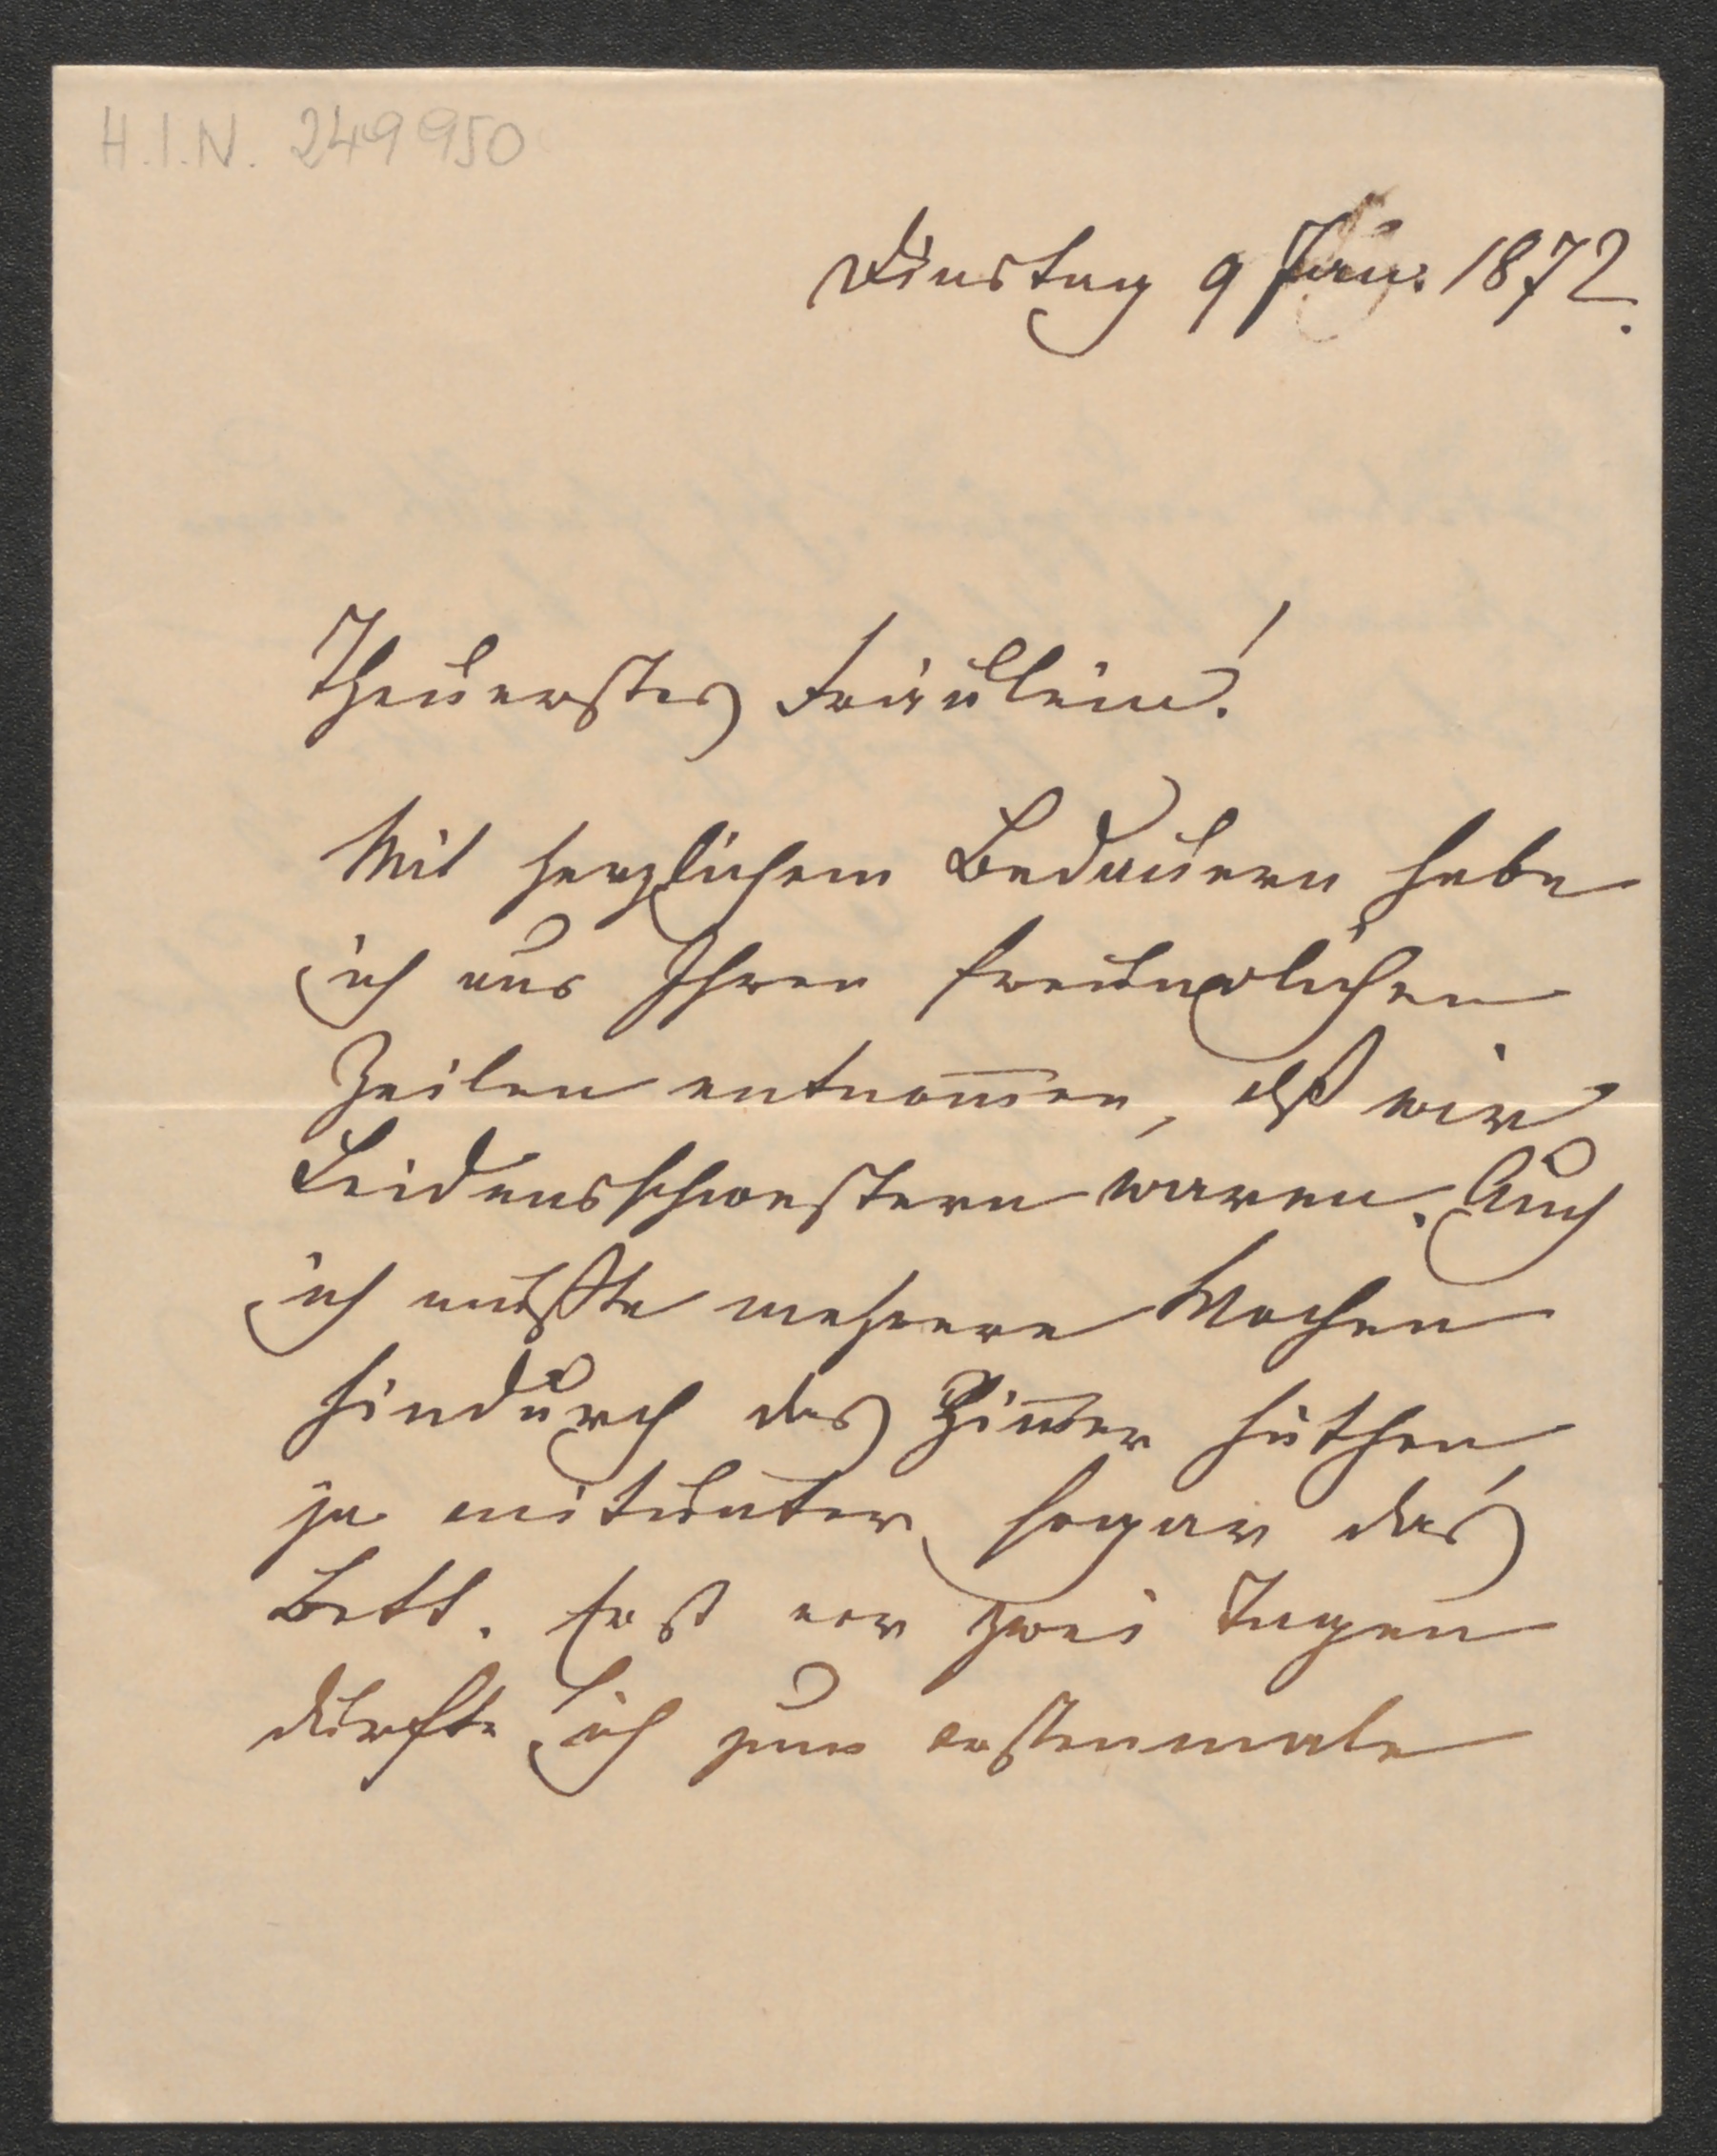 H.I.N. 249950
Dinstag 9 Jän. 1872.
Theuerstes Fräulein!
Mit herzlichem Bedauern habe
ich aus Ihren freundlichen
Zeilen entnom̅en, dß wir
Leidensschwestern waren. Auch
ich mußte mehrere Wochen
hindurch das Zim̅er hüthen,
ja mitunter sogar das
Bett. Erst vor zwei Tagen
durfte ich zum erstenmale